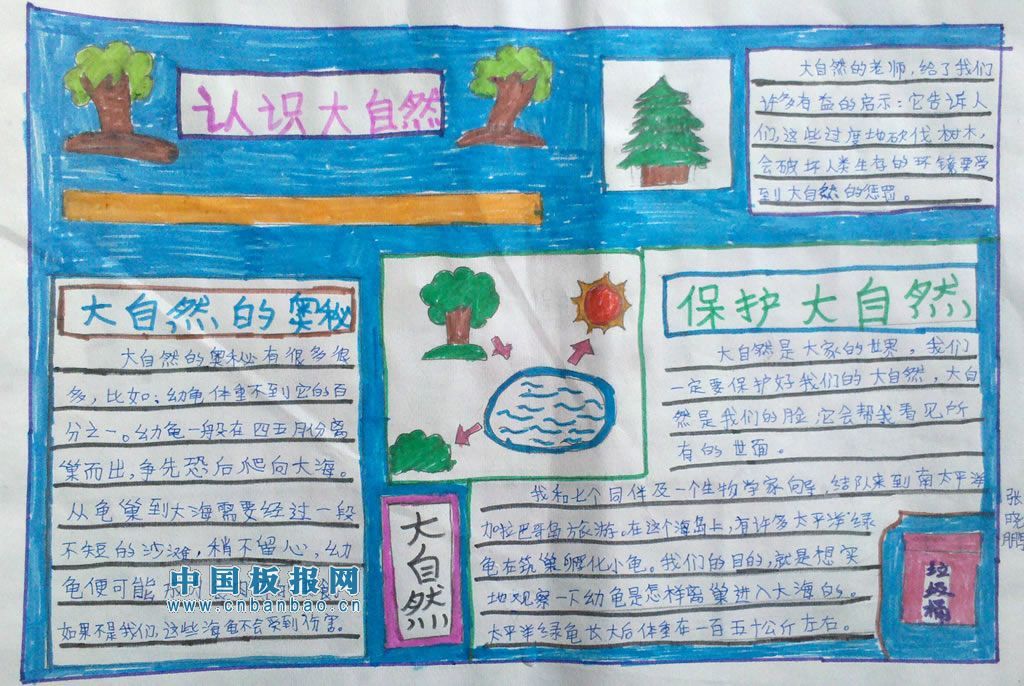 认识大自然
大自然的老师,给了我们
许多有益的启示:它告诉人
们,这些过度地砍伐树木,
会破坏人类生存的环境需要受
到大自然的惩罚。
大自然的奥秘
大自然的奥秘有很多很
多,比如:幼龟体重不到它的百
分之一。幼龟一般在四五月份离
巢而出,争先恐后爬向大海。
从龟巢到大海需要经过一段
不短的沙滩,稍不留心,幼
龟便可能
如果不是我们,这些海龟不会受到伤害。
中国板报网
www.cnbanbao.cn
保护大自然
大自然是大家的世界,我们
一定要保护好我们的大自然,大自
然是我们的脸,它会帮我看见所
有的世面。
大自然
我和七个同伴及一个生物学家向导,结队来到南太平洋
加拉巴哥岛旅游。在这个海岛上,有许多太平洋绿
龟在筑巢孵化小龟。我们的目的,就是想实
地观察一下幼龟是怎样离巢进入大海的。
太平洋绿龟长大后体重在一百五十公斤左右。
垃圾桶
张晓鹏